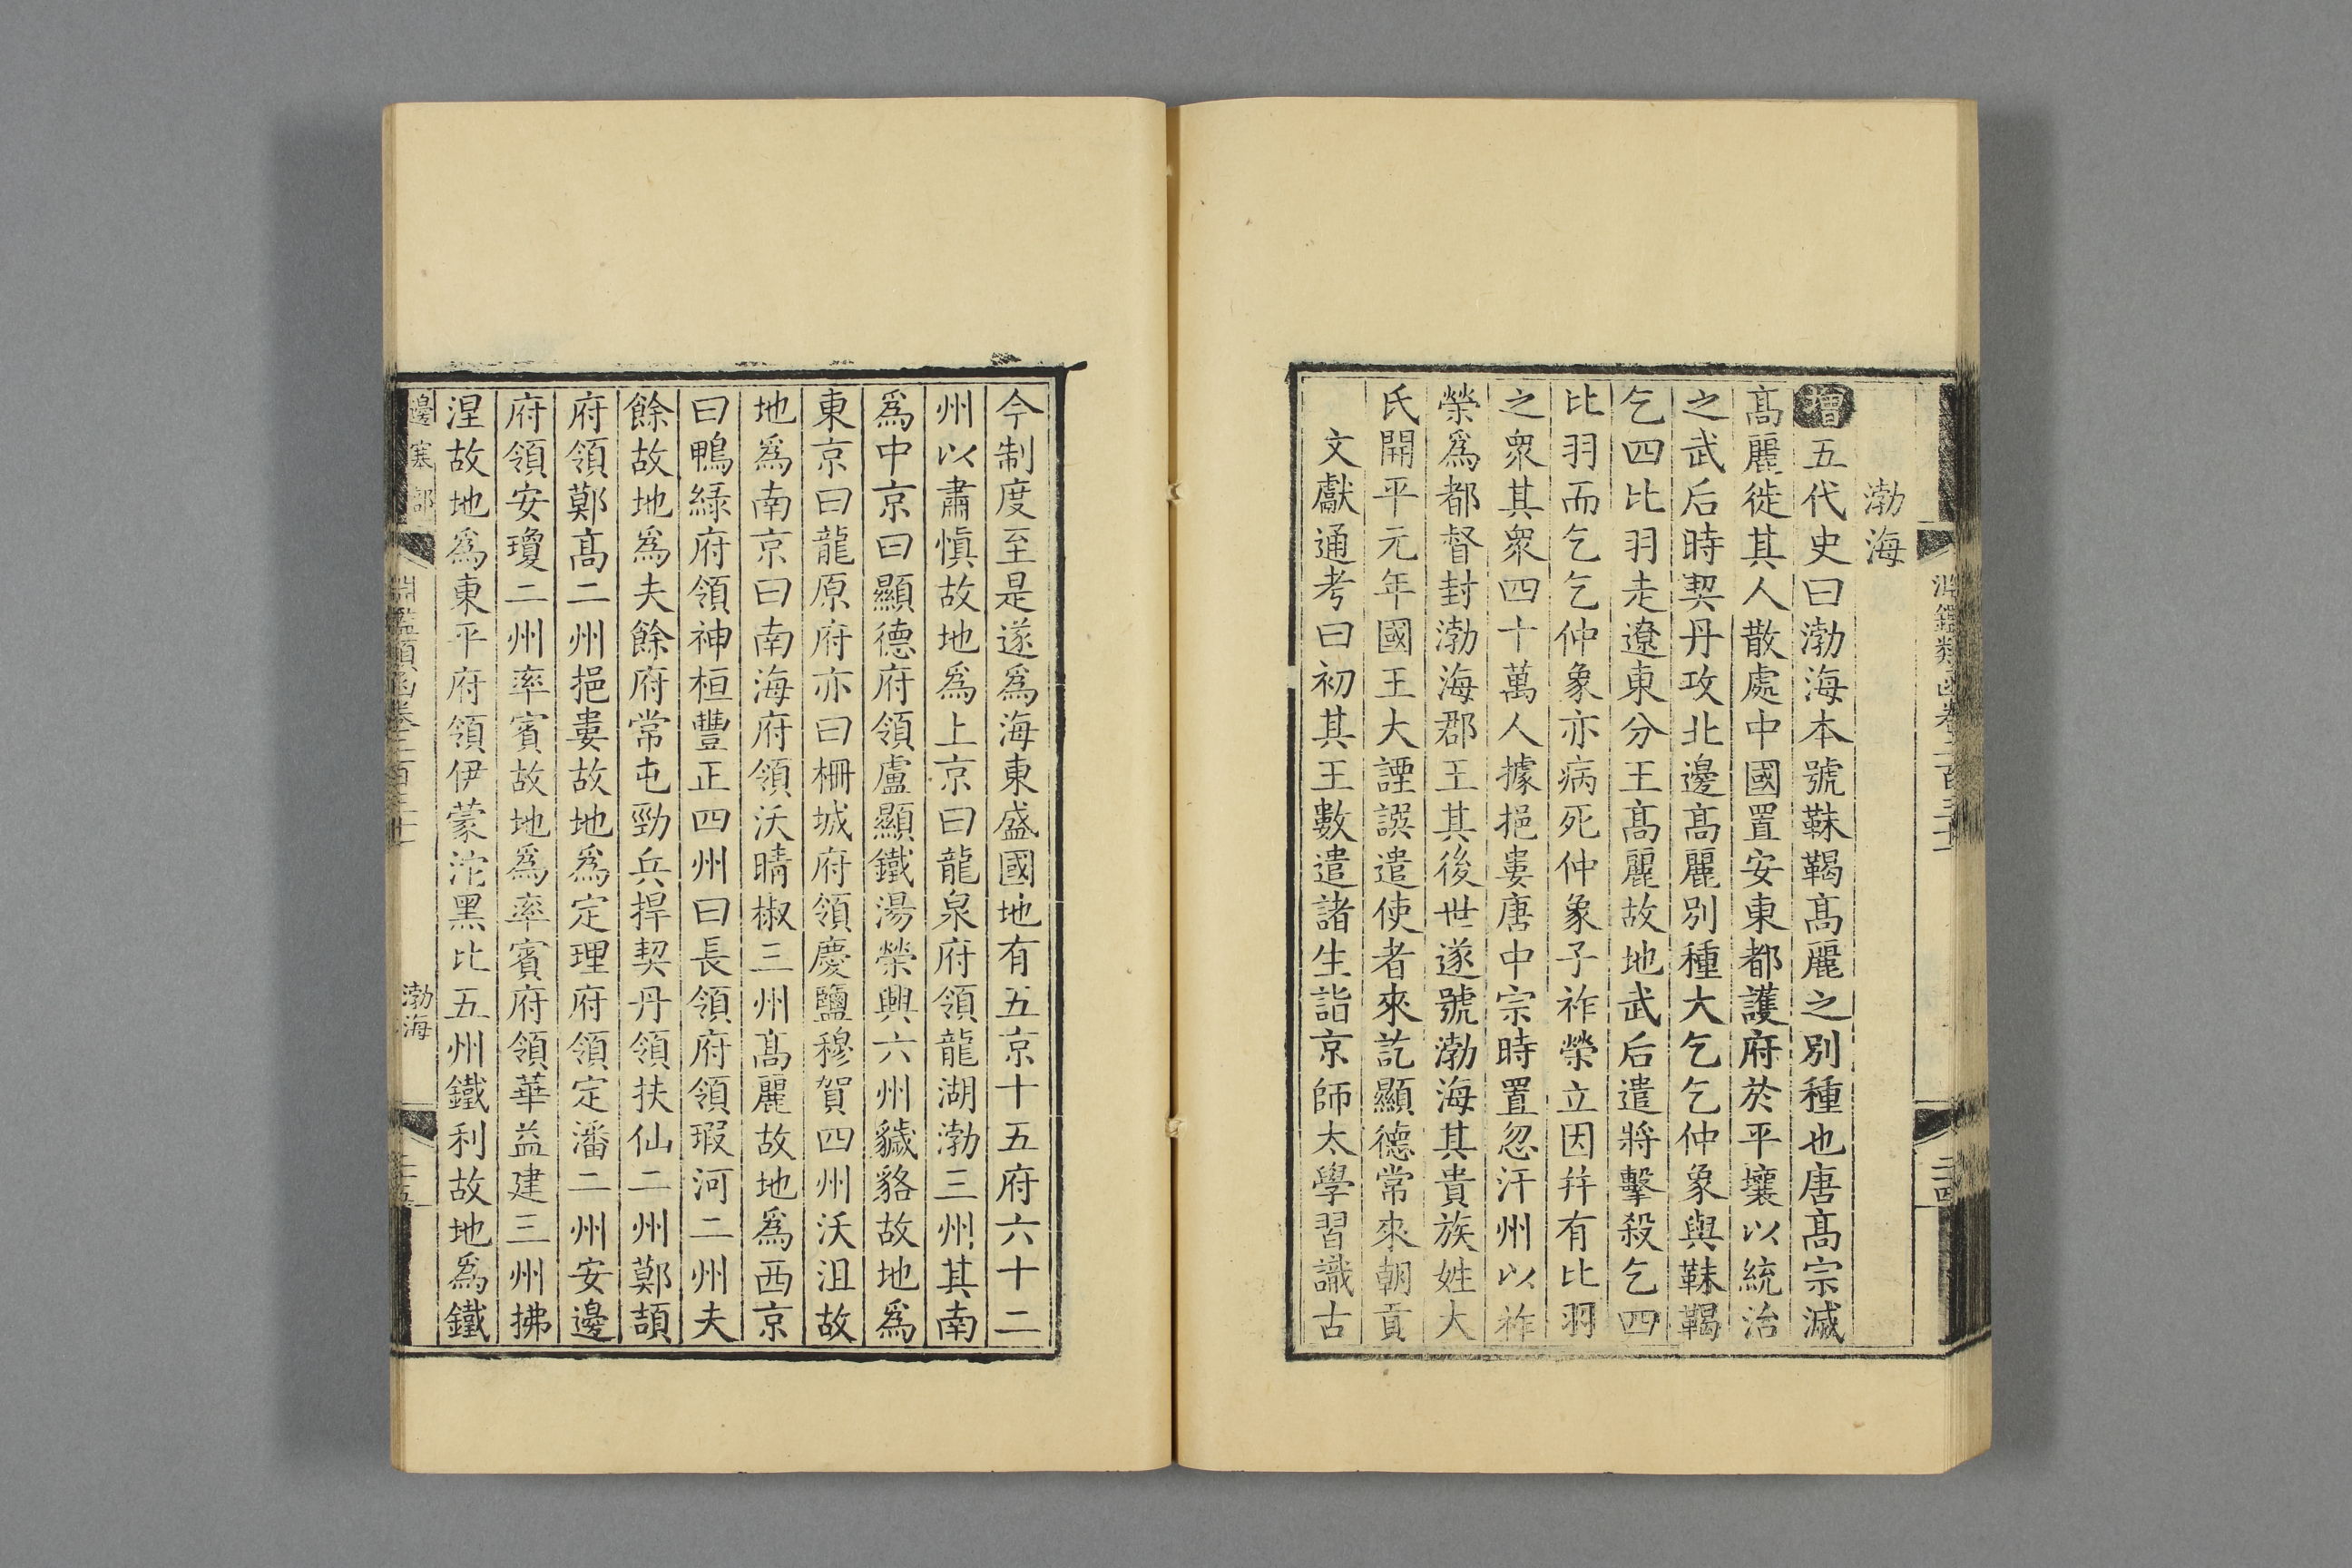 渤海
增五代史曰渤海本號靺鞨髙麗之別種也唐髙宗滅
髙麗徙其人散處中國置安東都護府於平壤以統治
之武后時契丹攻北邊髙麗別種大乞乞仲象與靺鞨
乞四比羽走遼東分王髙麗故地武后遣將擊殺乞四
比羽而乞乞仲象亦病死仲象子祚榮立因并有比羽
之衆其衆四十萬人據挹婁唐中宗時置忽汗州以祚
榮爲都督封渤海郡王其後世遂號渤海其貴族姓大
氏開平元年國王大諲譔遣使者來訖顯德常來朝貢
文獻通考曰初其王數遣諸生詣京師太學習識古
今制度至是遂爲海東盛國地有五京十五府六十二
州以肅慎故地爲上京曰龍泉府領龍湖渤三州其南
爲中京曰顯德府領盧顯鐵湯榮興六州獩貉故地爲
東京曰龍原府亦曰柵城府領慶鹽穆賀四州沃沮故
地爲南京曰南海府領沃晴椒三州髙麗故地爲西京
曰鴨綠府領神桓豐正四州曰長領府領瑕河二州夫
餘故地爲夫餘府常屯勁兵捍契丹領扶仙二州鄭頡
府領鄭髙二州挹婁故地爲定理府領定潘二州安邊
府領安瓊二州率賓故地爲率賓府領華益建三州拂
涅故地爲東平府領伊蒙沱黑比五州鐵利故地爲鐵
邊塞部
淵鑑類函卷二百三十
渤海